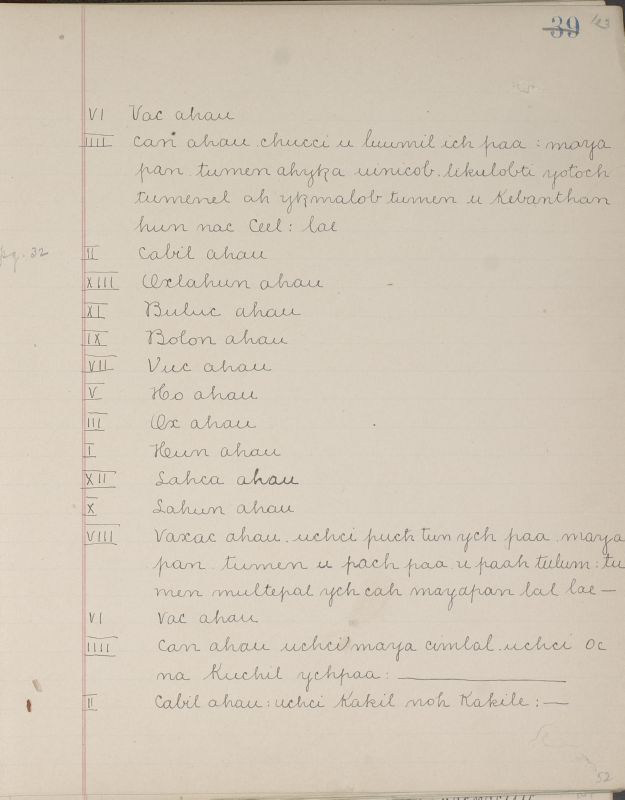 39 43
VI Vac ahau
IIII can ahau. chucci u luumil ich paa: maya
pan. tumen ahyꜩa uinicob. likulobti yotoch
tumenel ah yꜩmalob tumen u Kebanthan
hun nac Ceel: lae
pg. 32 II Cabil ahau
XIII Oxlahun ahau
XI Buluc ahau
IX Bolon ahau
VII Vuc ahau
V Ho ahau
III Ox ahau
I Hun ahau
XII Lahca ahau
X Lahun ahau
VIII Vaxac ahau. uchci puch tun ych paa. maya
pan. tumen u pach paa. u paah tulum: tu
men multepal ych cah mayapan lal lae —
VI Vac ahau
IIII Can ahau uchci maya cimlal. uchci Oc
na Kuchil ychpaa:
II Cabil ahau: uchci Kakil noh Kakile: —
52